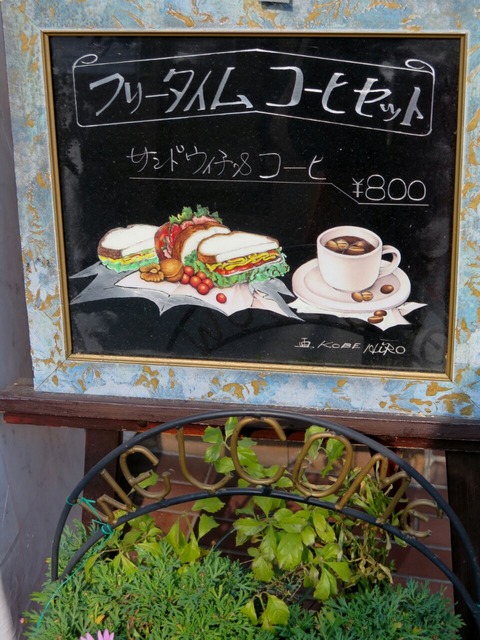 フリータイム コーヒセット
サンドウィチ&コーヒ
¥800
画. KOBE HIRO
WELCOME